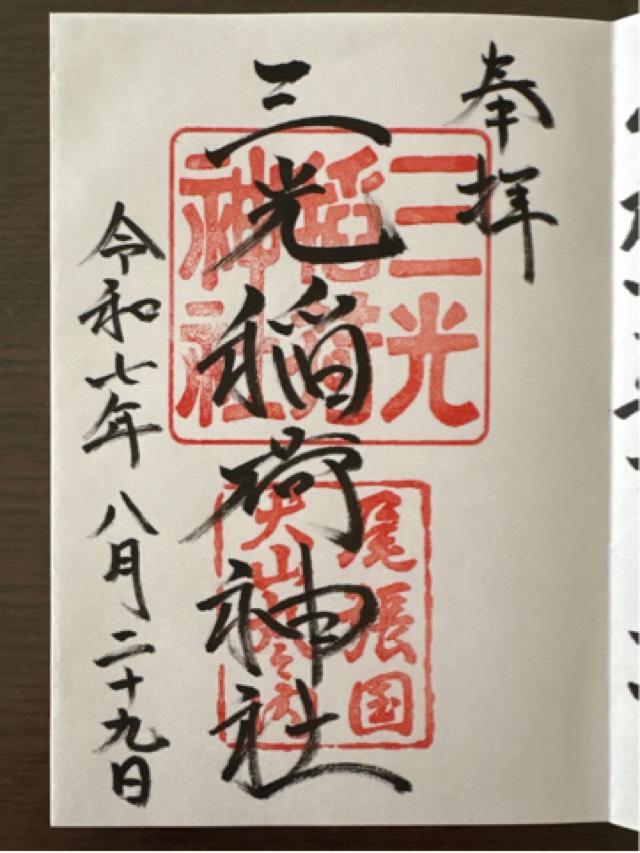 奉拝
三光稲荷神社
三光
稲荷
神社
尾張国
犬山
令和七年八月二十九日